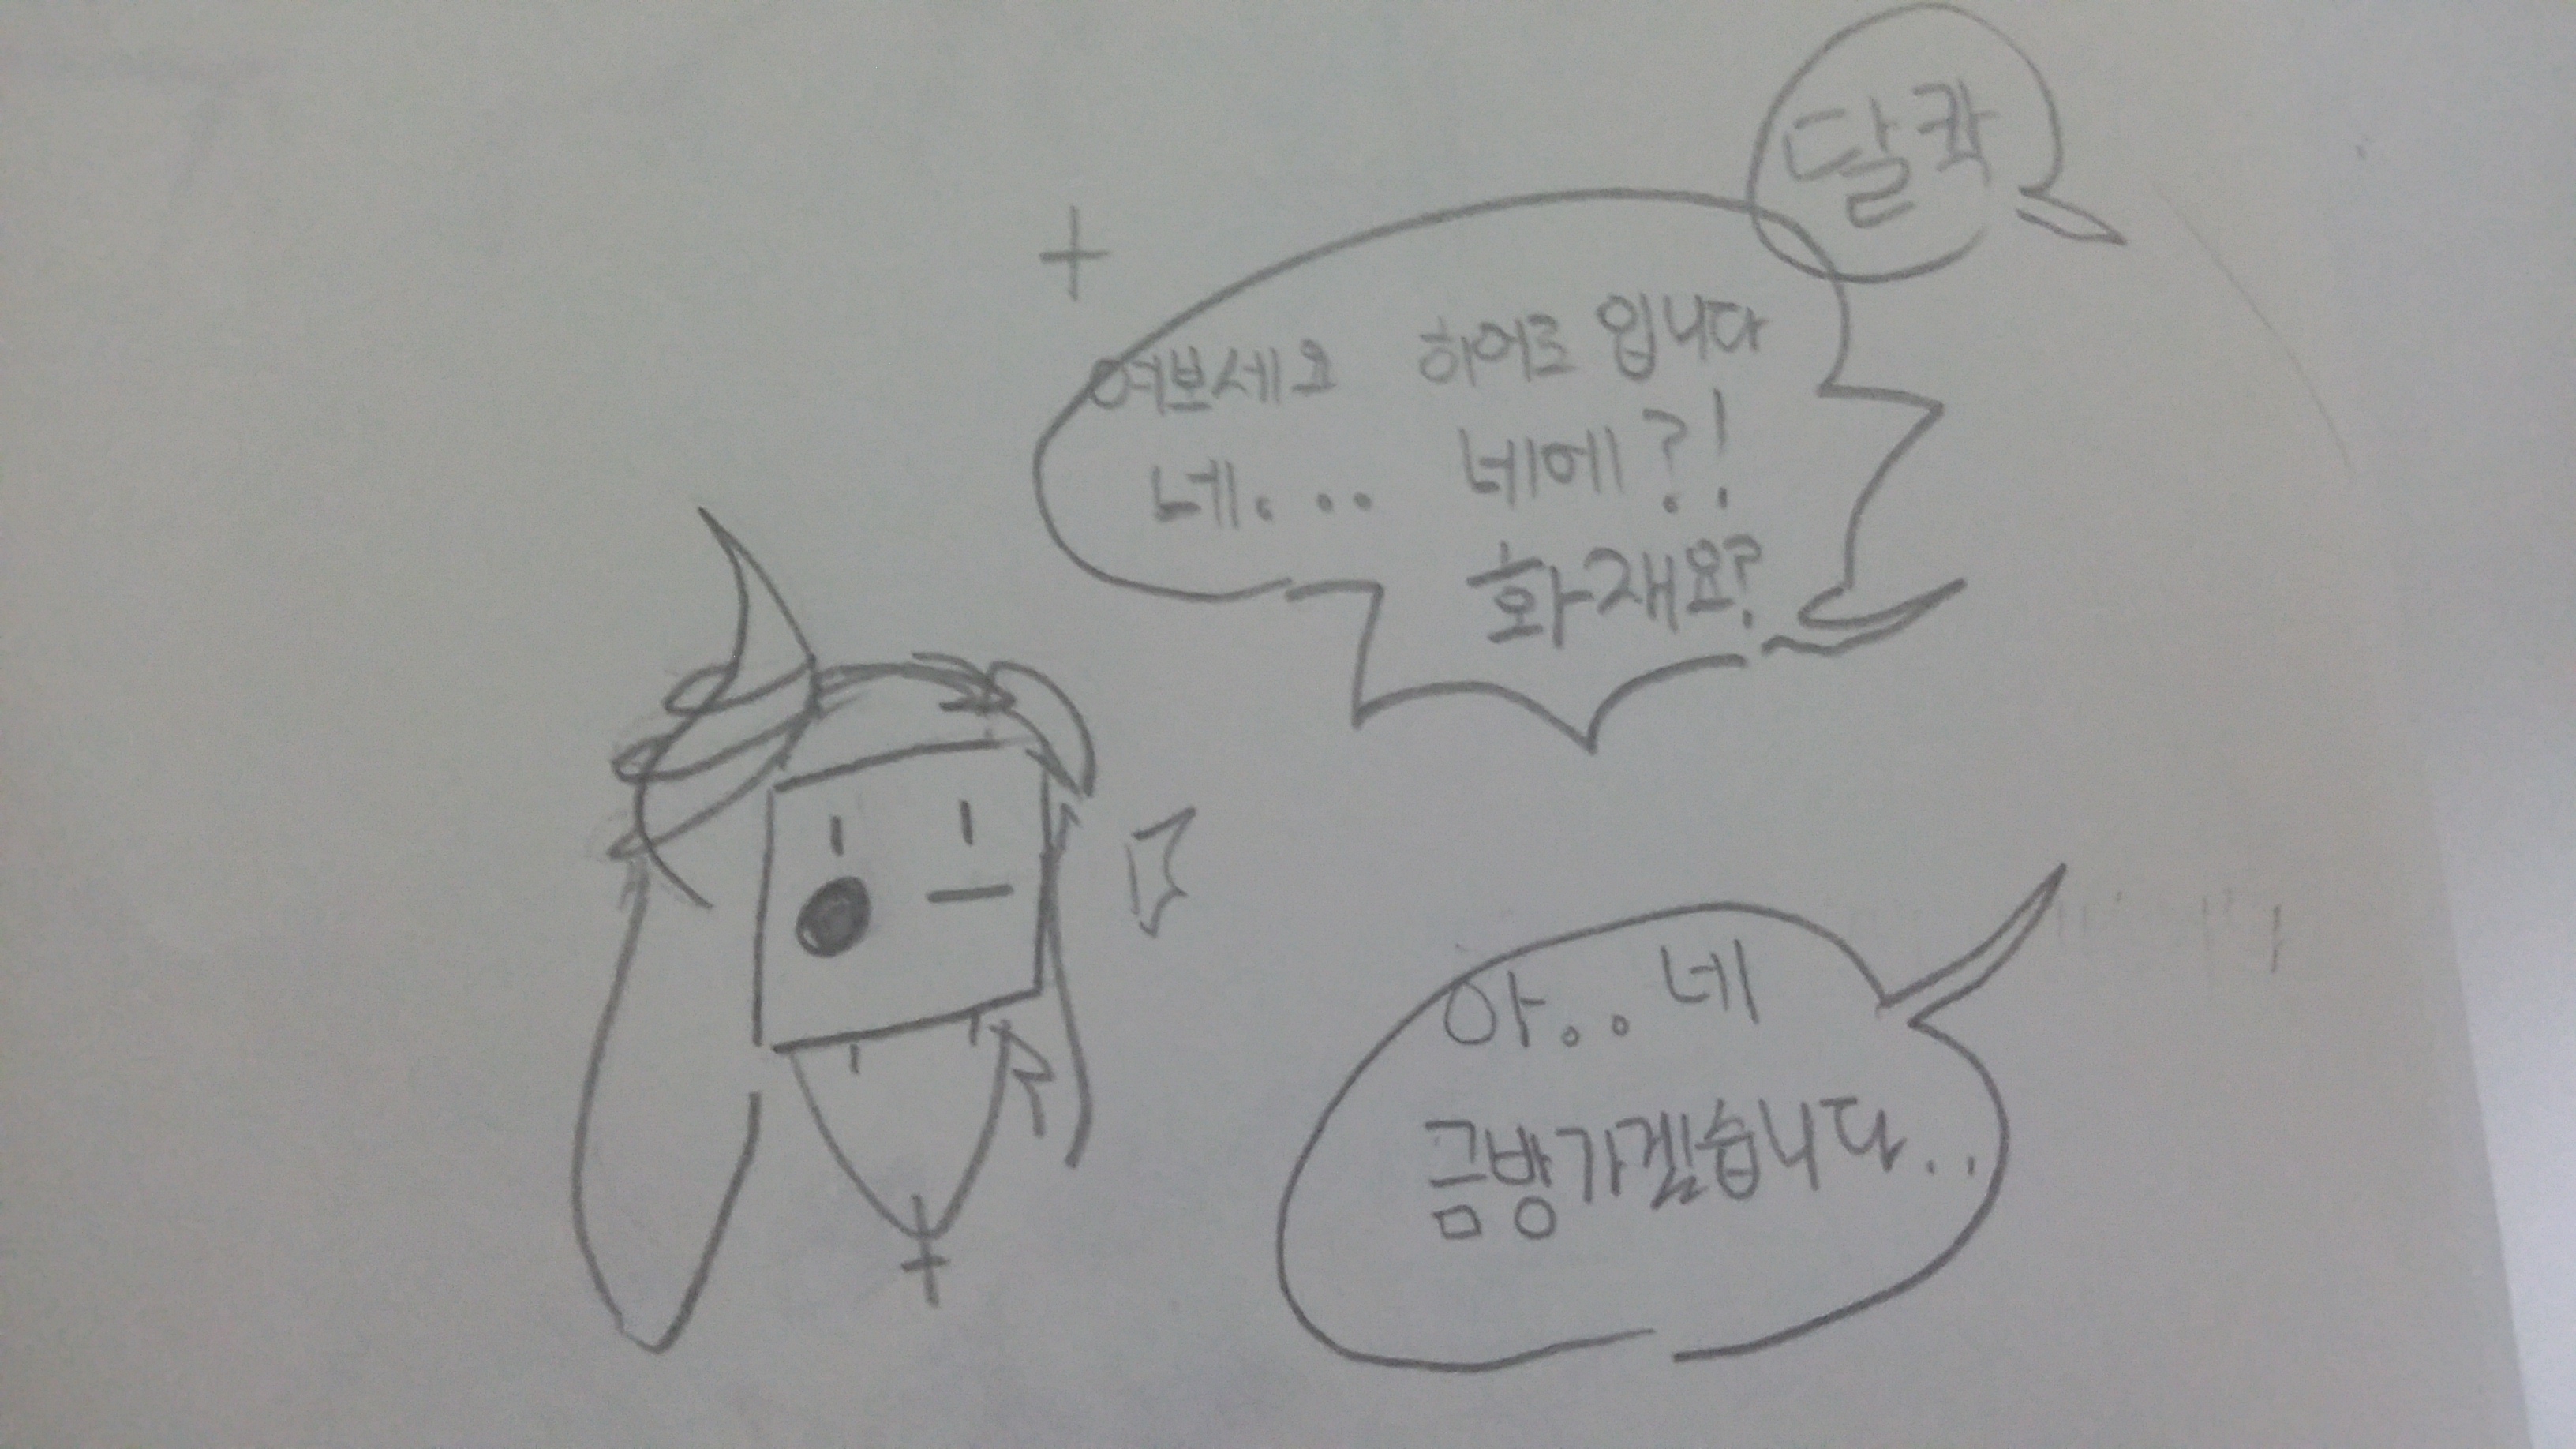 달칵
여보세요 히어로 입니다
네... 네에?!
화재요?
아.. 네
금방가겠습니다..